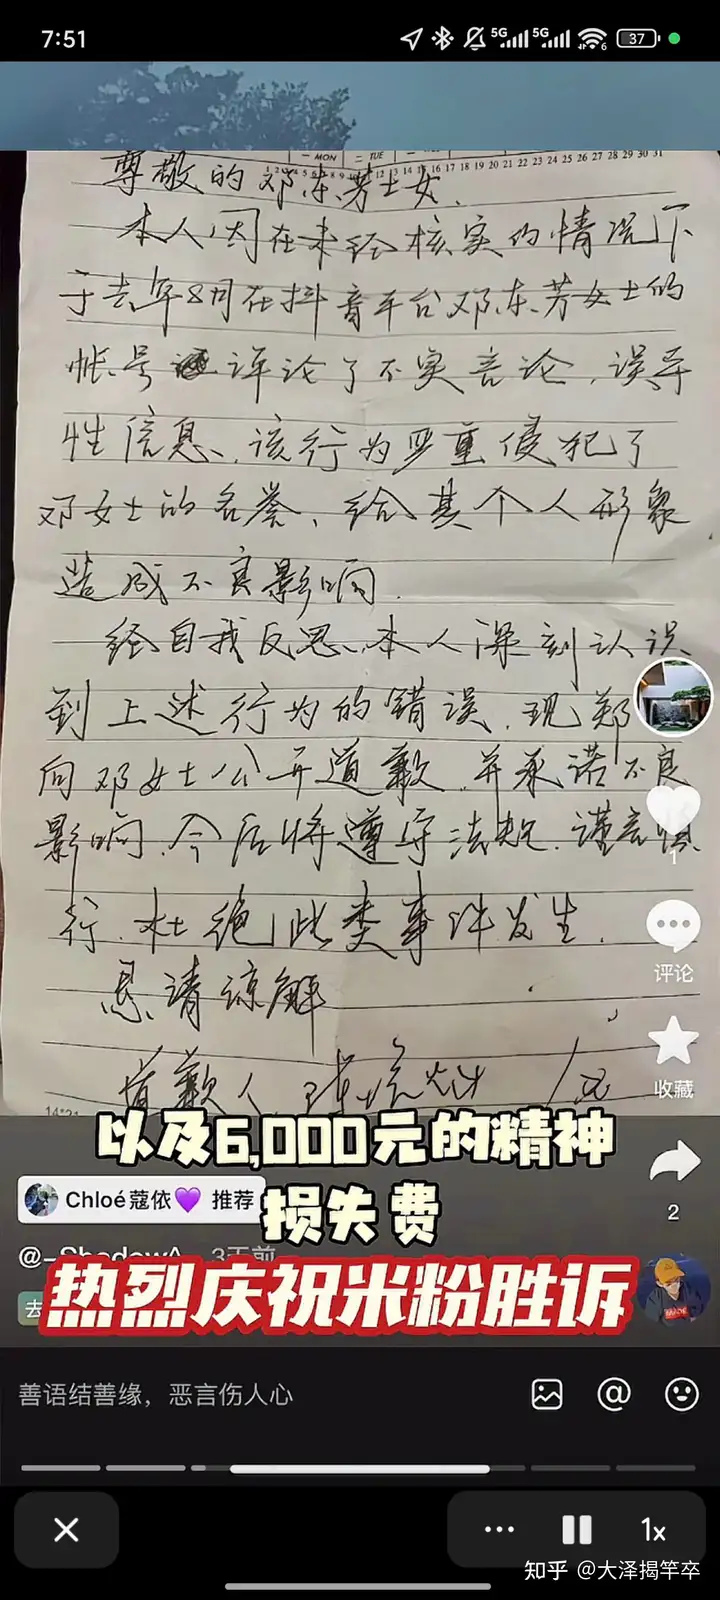 7:51
5G
5G
6
37
一 MON
二 TUE
尊敬的邓东芳士女.
本人因在未经核实的情况下
于去年8月在抖音平台邓东芳女士的
帐号评论了不实言论,误导
性信息、该行为严重侵犯了
邓女士的名誉、给其个人形象
造成不良影响.
经自我反思、本人深刻认识
到上述行为的错误,现郑
向邓女士公开道歉,并承诺不良
影响,今后将遵守法规,谨言慎
行,杜绝此类事件发生.
恳请谅解
道歉人
1
评论
收藏
以及6,000元的精神
损失费
Chloé蔻依💜 推荐
2
@-ShadowA 3天前
热烈庆祝米粉胜诉
去
善语结善缘，恶言伤人心
1x
知乎 @大泽揭竿卒